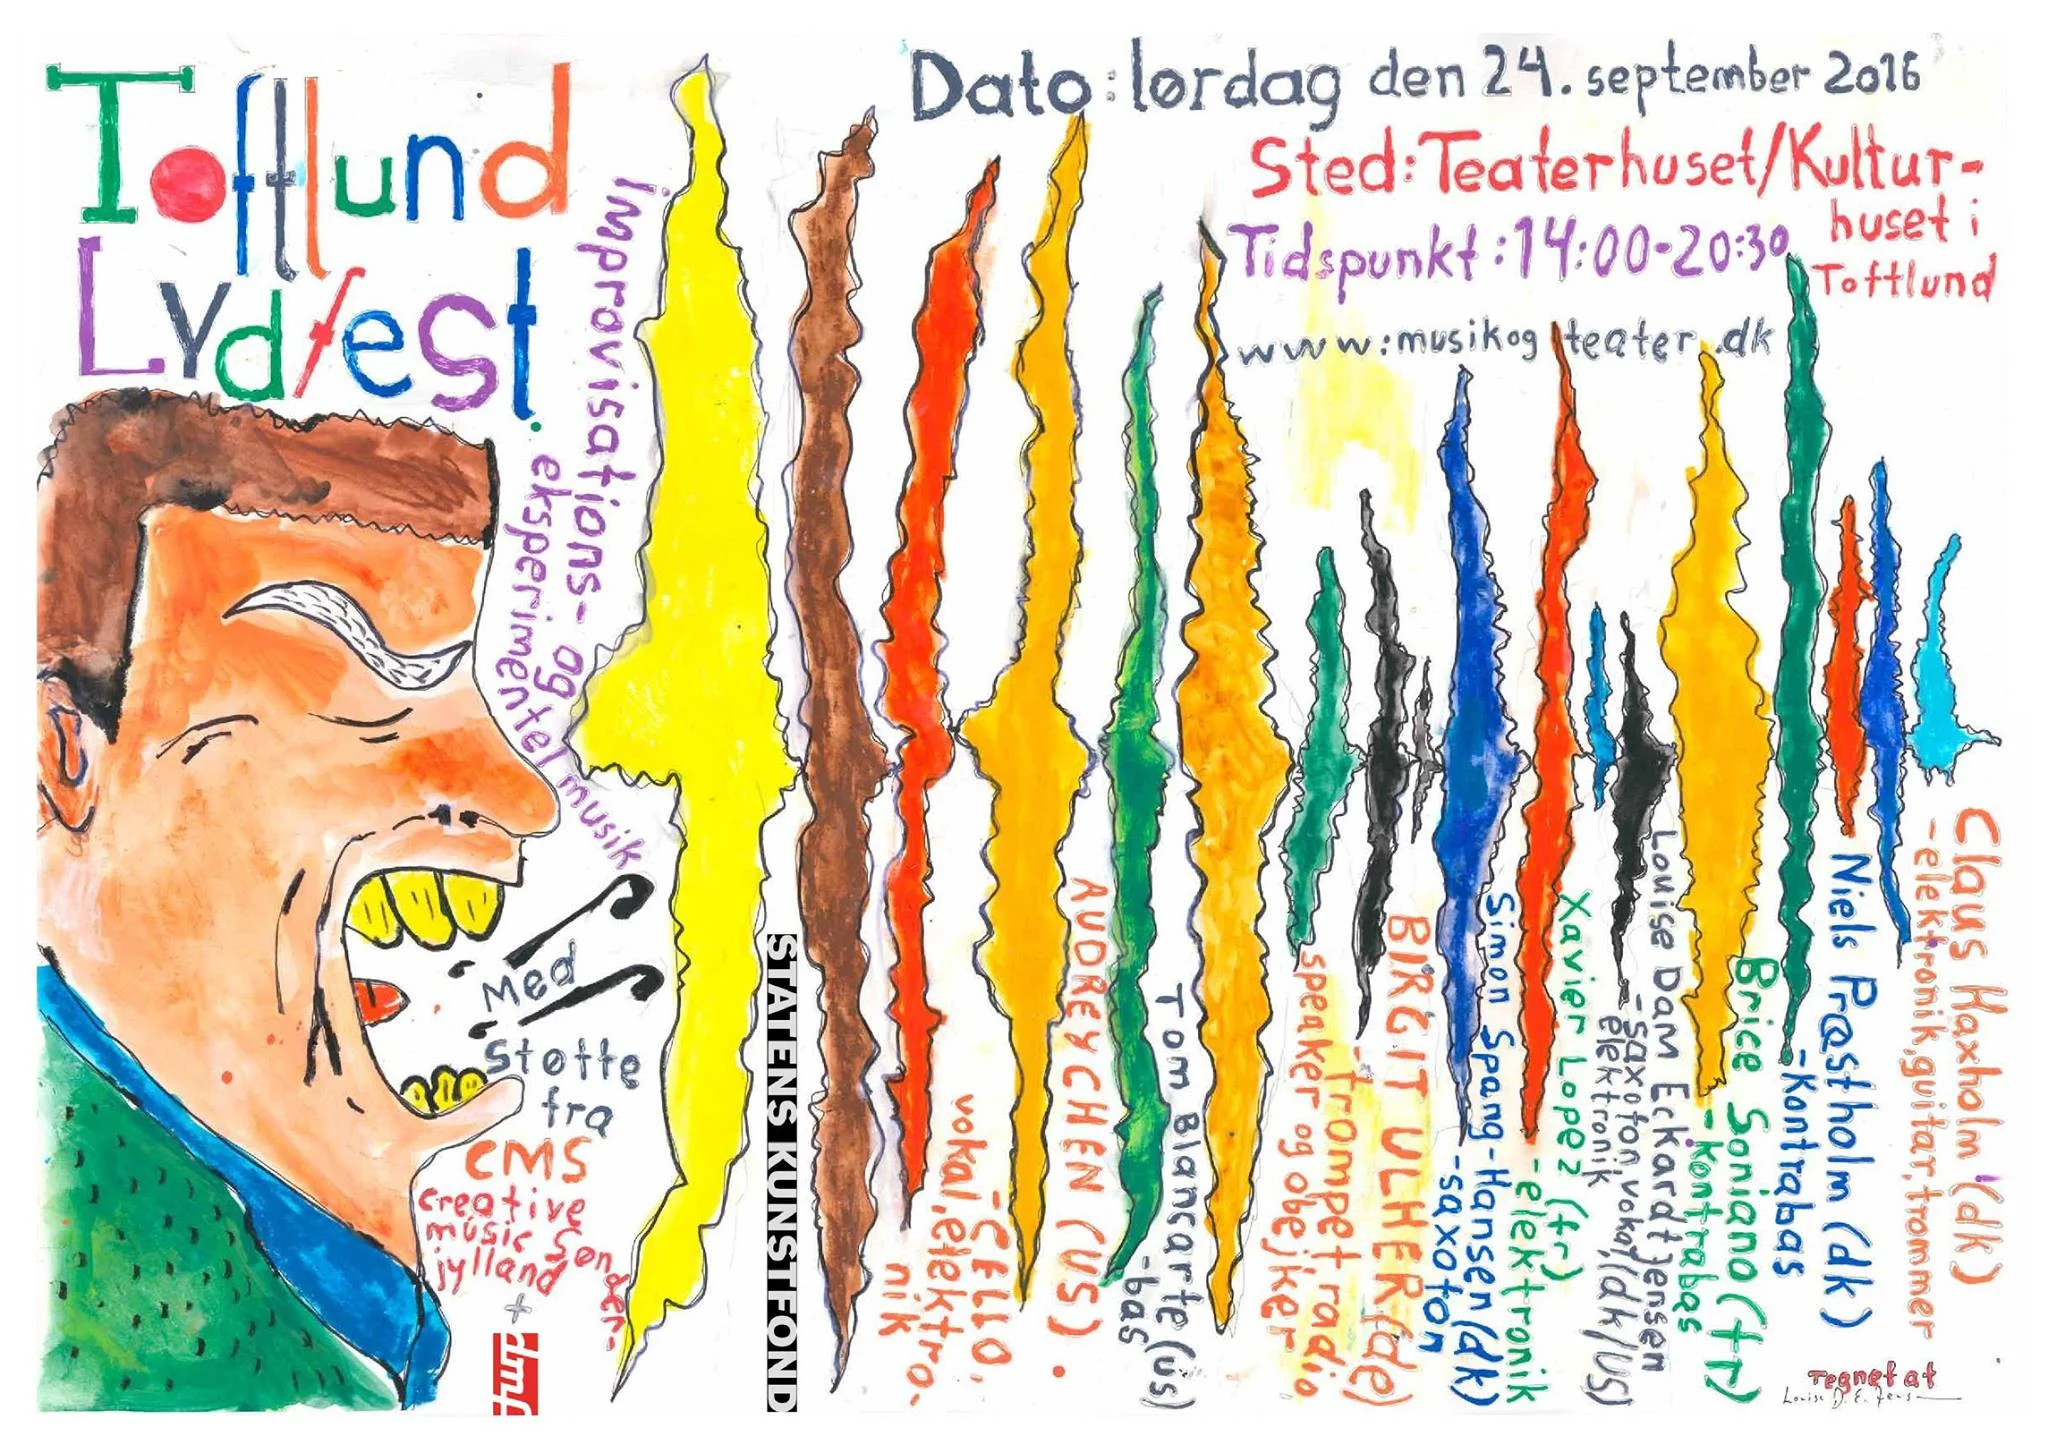 Toftlund
Lydfest.
Dato: lørdag den 24. september 2016
Sted: Teaterhuset/Kultur-
huset i
Toftlund
Tidspunkt: 14:00-20:30
www: musikog teater .dk
improvisations- og
eksperimentel musik
Med
støtte
fra
CMS
creative
music Sønder-
jylland
+
STATENS KUNSTFOND
AUDREY CHEN (US)
-CELLO,
vokal, elektro.
nik
Tom Blancarte (us)
-bas
BIRGIT ULHER (de)
-trompet radio
speaker og objekter
Simon Spang-Hansen (dk)
-saxofon
Xavier Lopez (fr)
-elektronik
Louise Dam Eckardt Jensen
-saxofon, vokal, (dk/US)
elektronik
Brice Soniano (fr)
-Kontrabas
Niels Præstholm (dk)
-Kontrabas
Claus Haxholm (dk)
-elektronik, guitar, trommer
Tegnet af
Louise D. E. Jensen